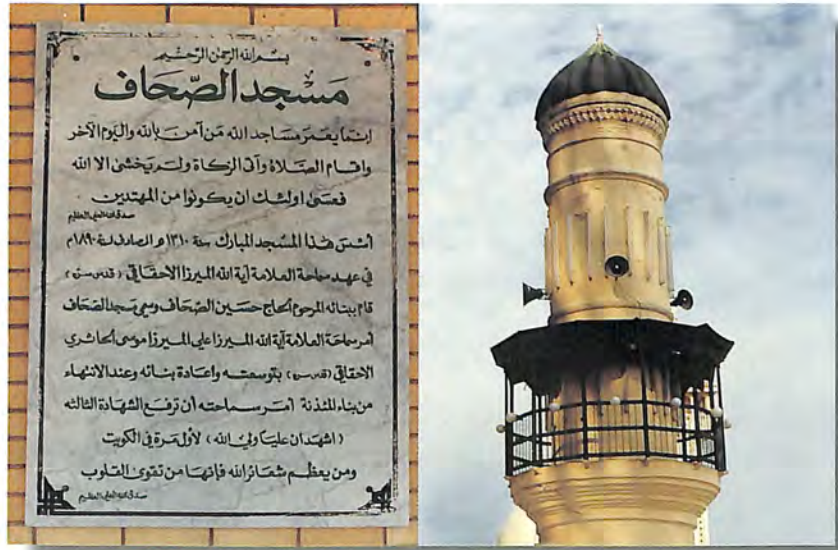 بسم الله الرحمن الرحيم
مسجد الصحاف
إنما يعمر مساجد الله من آمن بالله واليوم الآخر
واقام الصلاة وآتى الزكاة ولم يخشى الا الله
فعسى اولئك ان يكونوا من المهتدين
صدق الله العلي العظيم
أسس هذا المسجد المبارك سنة ١٣١٠ه الصادف لسنة ١٨٩٠م
في عهد سماحة العلامة آية الله الميرزا الاحقاقي (قدس سره)
قام ببنائه المرحوم الحاج حسين الصحاف وسمي مسجد الصحاف
أمر سماحة العلامة آية الله الميرزا علي الميرزا موسى الحائري
الاحقاقي (قدس سره) بتوسعته واعادة بنائه وعند الانتهاء
من بناء المئذنة أمر سماحته أن ترفع الشهادة الثالثه
(اشهد ان عليا ولي الله) لأول مرة في الكويت
ومن يعظم شعائر الله فإنها من تقوى القلوب
صدق الله العلي العظيم